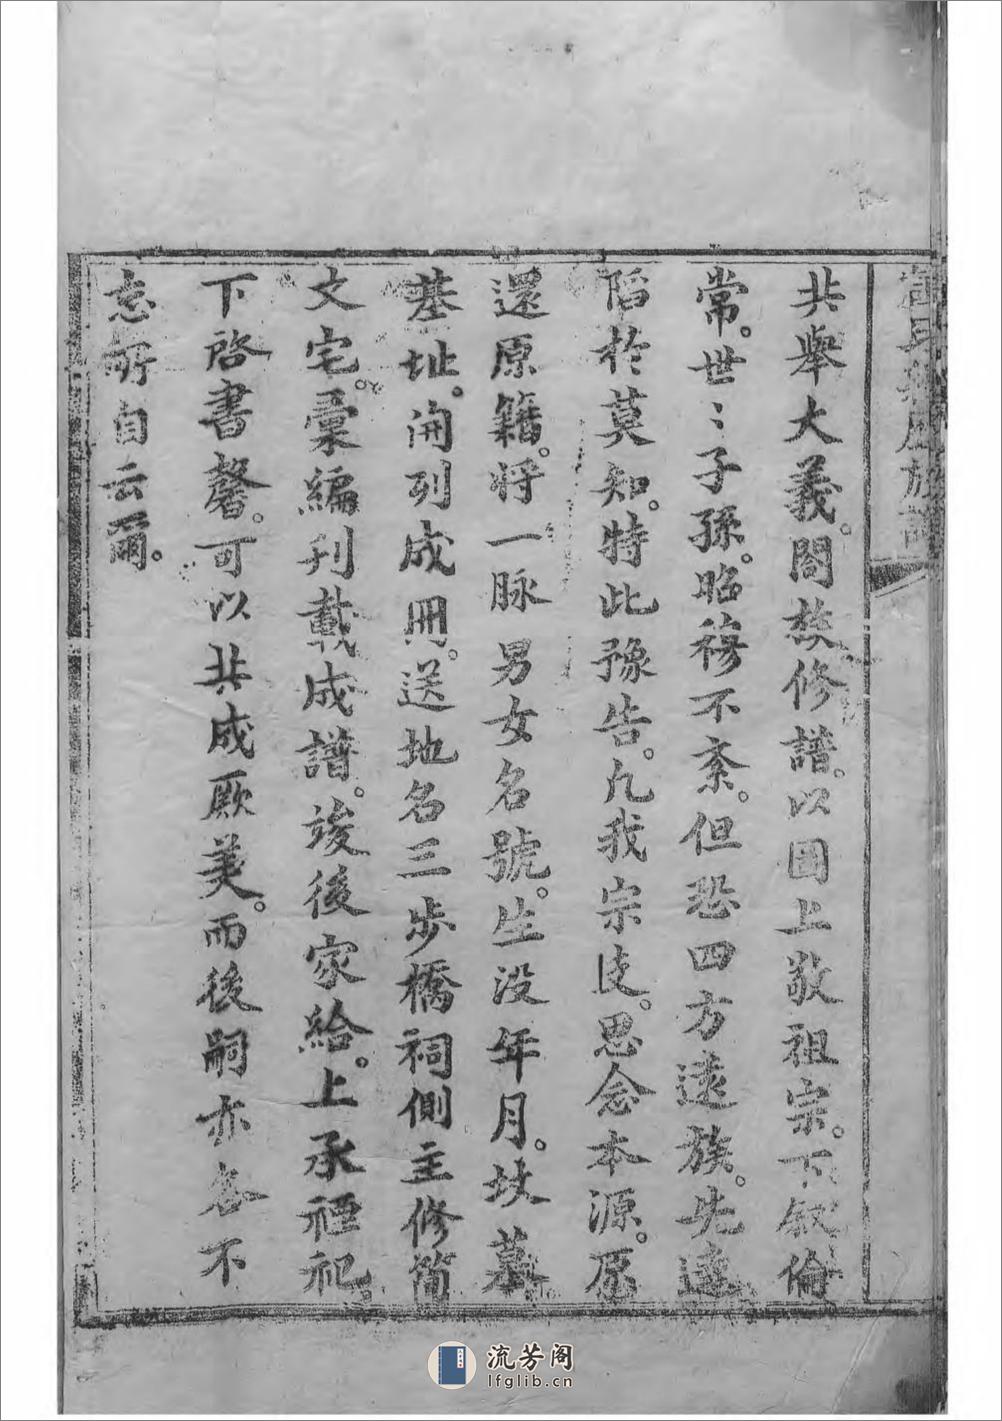 共舉大義。閤族修譜。以圖上敬祖宗。下敘倫
常。世〻子孫。昭穆不紊。但恐四方遠族。失達
陷於莫知。特此豫告。凡我宗支。思念本源。原
還原籍。将一脉男女名號。生没年月。坟墓
基址。開列成冊。送地名三步橋祠側主修簡
文宅。彙編刊載成譜。竣後家給。上承禋祀
下啓書馨。可以共成厥美。而後嗣亦各不
忘所自云爾。
氏 族譜
流芳阁
lfglib.cn